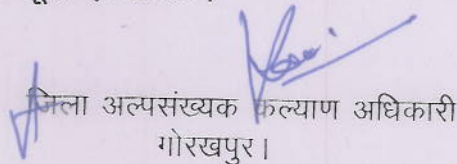 जिला अल्पसंख्यक कल्याण अधिकारी
गोरखपुर।